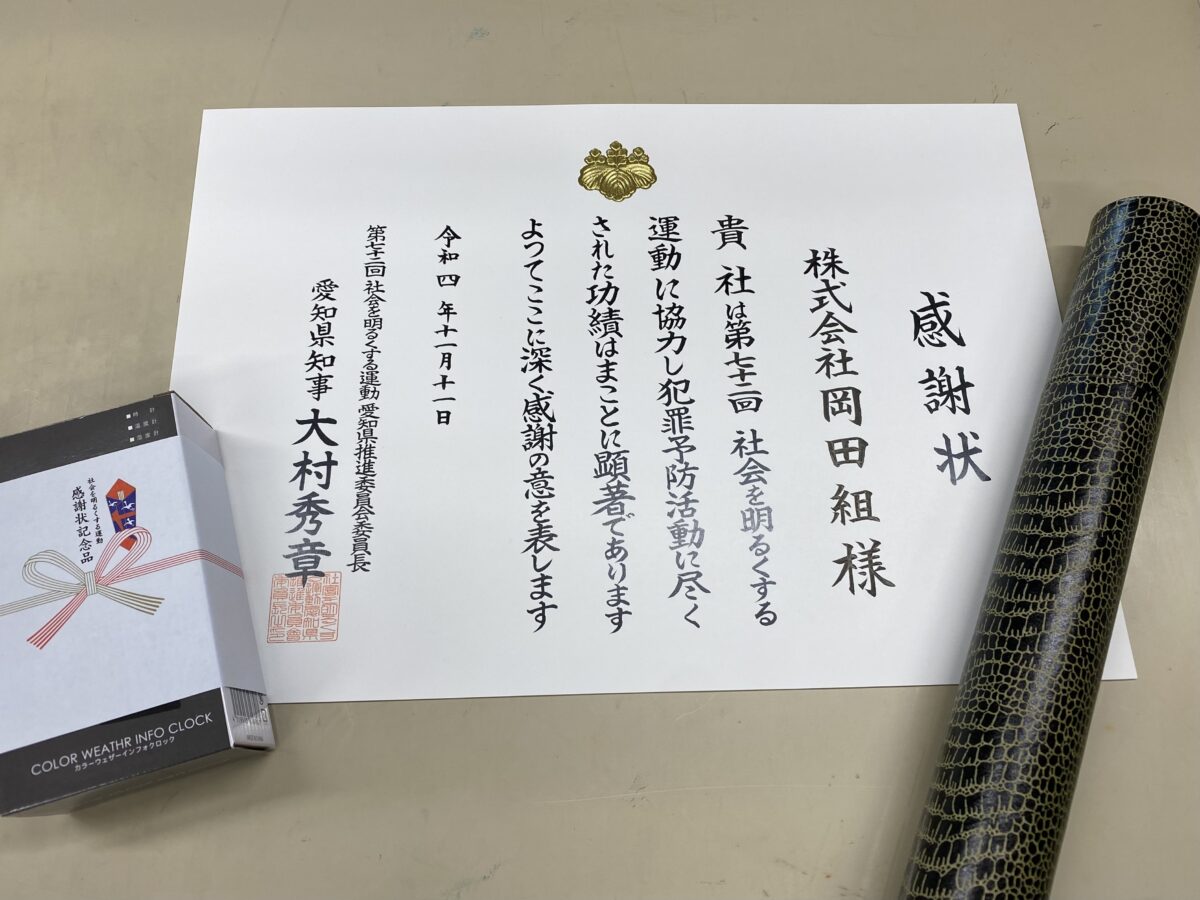 感謝状
株式会社岡田組様
貴社は第七十二回社会を明るくする
運動に協力し犯罪予防活動に尽く
された功績はまことに顕著であります
よつてここに深く感謝の意を表します
令和四年十一月十一日
第七十二回社会を明るくする運動愛知県推進委員会委員長
愛知県知事大村秀章
■時計
■温度計
■湿度計
社会を明るくする運動
感謝状記念品
COLOR WEATHR INFO CLOCK
カラーウェザーインフォクロック